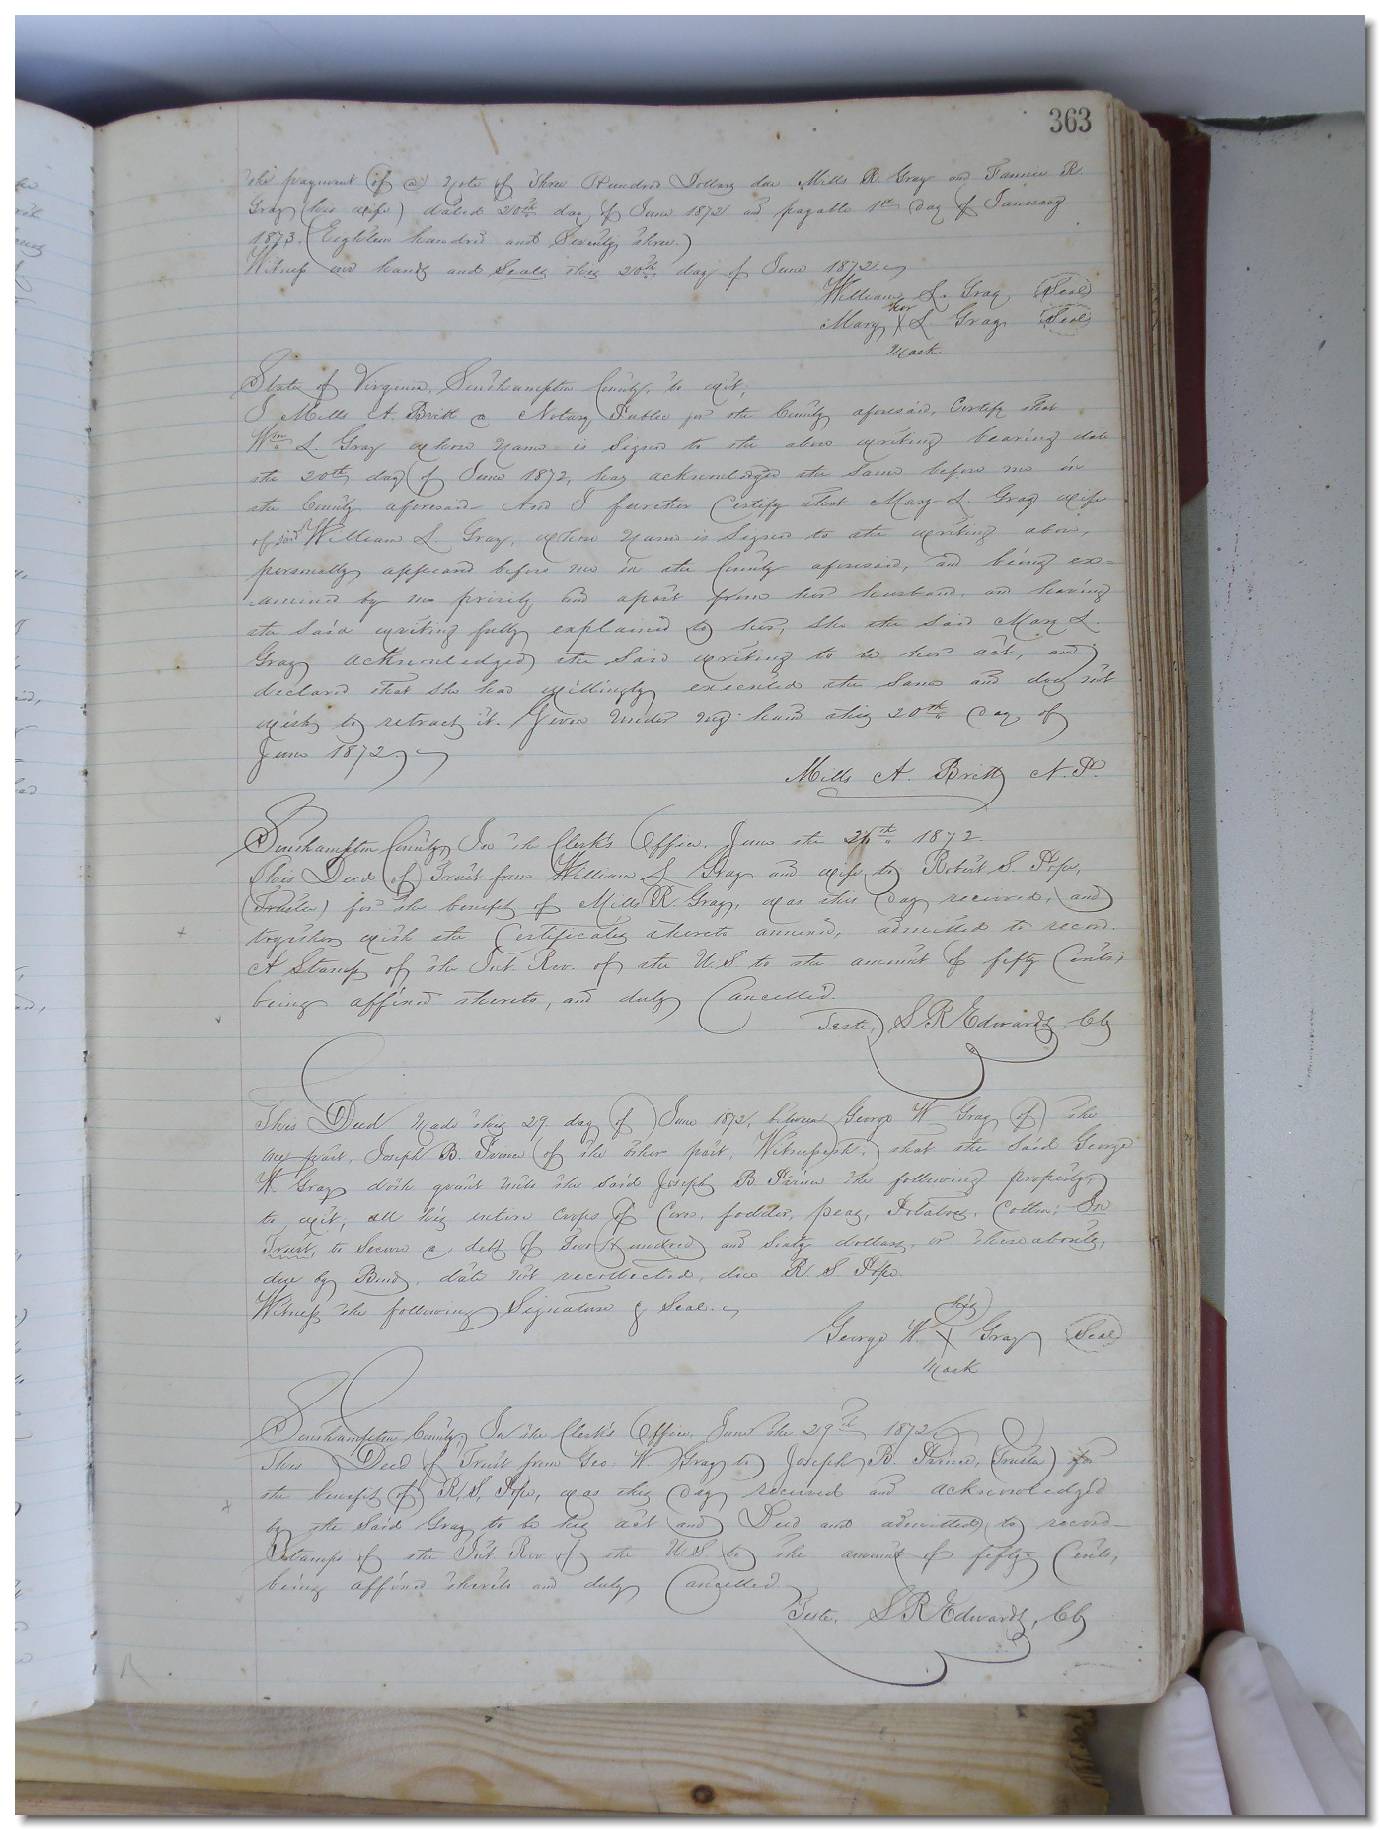 363
the payment of a note of Three Hundred Dollars due Mills R. Gray and Fannie R.
Gray (his wife) dated 20th day of June 1872 and payable 1st day of January
1873. (Eighteen hundred and Seventy three.)
Witness our hands and Seals this 20th day of June 1872.
William L. Gray (Seal)
her
Mary X L Gray (Seal)
mark
State of Virginia, Southampton County, to wit;
I Mills A. Britt a Notary Public for the County aforesaid, Certify that
Wm L. Gray whose name is Signed to the above writing bearing date
the 20th day of June 1872, has acknowledged the Same before me in
the County aforesaid And I further Certify that Mary L. Gray wife
of said William L. Gray, whose name is Signed to the writing above,
personally appeared before me in the County aforesaid, and being ex=
amined by me privily and apart from her husband, and having
the said writing fully explained to her, She the said Mary L.
Gray acknowledged the Said writing to be her act, and
declared that She had willingly executed the Same and does not
wish to retract it. Given under my hand this 20th day of
June 1872
Mills A. Britt N. P.
Southampton County, In the Clerk's Office, June the 26th 1872
This Deed of Trust from William L Gray and wife to Robert S. Pope,
(Trustee) for the benefit of Mills R. Gray, was this day received, and
together with the Certificates thereto annexed, admitted to record.
A Stamp of the Int. Rev. of the U. S to the amount of fifty Cents;
being affixed thereto, and duly Cancelled.
Teste, S. R. Edwards, Clk
This Deed made this 29 day of June 1872, between George W Gray of the
one part, Joseph B. Prince of the other part, Witnesseth: that the said George
W. Gray doth grant unto the said Joseph B Prince the following property,
to wit, all his entire crops of Corn, fodder, peas, Potatoes, Cotton; In
Trust, to Secure a debt of Two Hundred and Sixty dollars, or thereabouts,
due by Bond, date not recollected, due R. S Pope.
Witness the following Signature & Seal.
his
George W. X Gray (Seal)
mark
Southampton County, In the Clerk's Office, June the 29th 1872
This Deed of Trust from Geo. W. Gray to Joseph B. Prince, (Trustee) for
the benefit of R. S. Pope, was this day received and acknowledged
by the Said Gray to be his act and Deed and admitted to record
Stamps of the Int. Rev of the U S to the amount of fifty Cents,
being affixed thereto and duly Cancelled.
Teste. S R Edwards, Clk